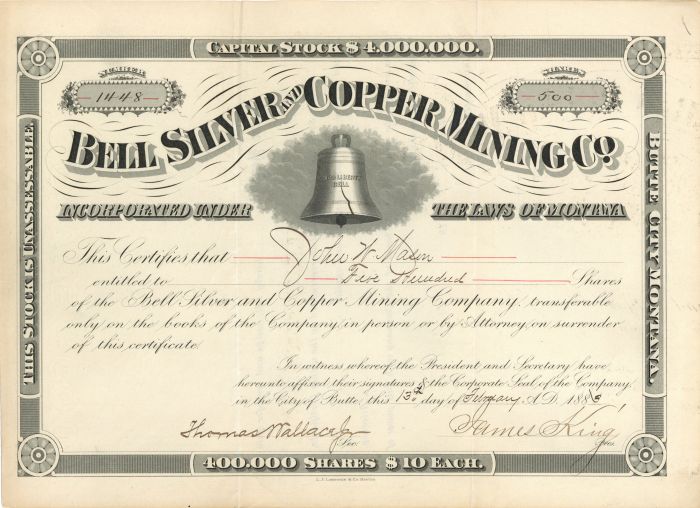 CAPITAL STOCK $4,000,000.
NUMBER
1448
SHARES
500
BELL SILVER AND COPPER MINING CO.
OLD LIBERTY
BELL
INCORPORATED UNDER THE LAWS OF MONTANA
THIS STOCK IS UNASSESSABLE
BUTTE CITY MONTANA.
This Certifies that John W Mason
entitled to Five Hundred Shares
of the Bell Silver and Copper Mining Company, transferable
only on the books of the Company, in person or by Attorney, on surrender
of this certificate.
In witness whereof, the President and Secretary have
hereunto affixed their signatures & the Corporate Seal of the Company,
in the City of Butte, this 13th day of February A.D. 1883
Thomas Wallace Jr
Sec.
James King
Pres.
400,000 SHARES $10 EACH.